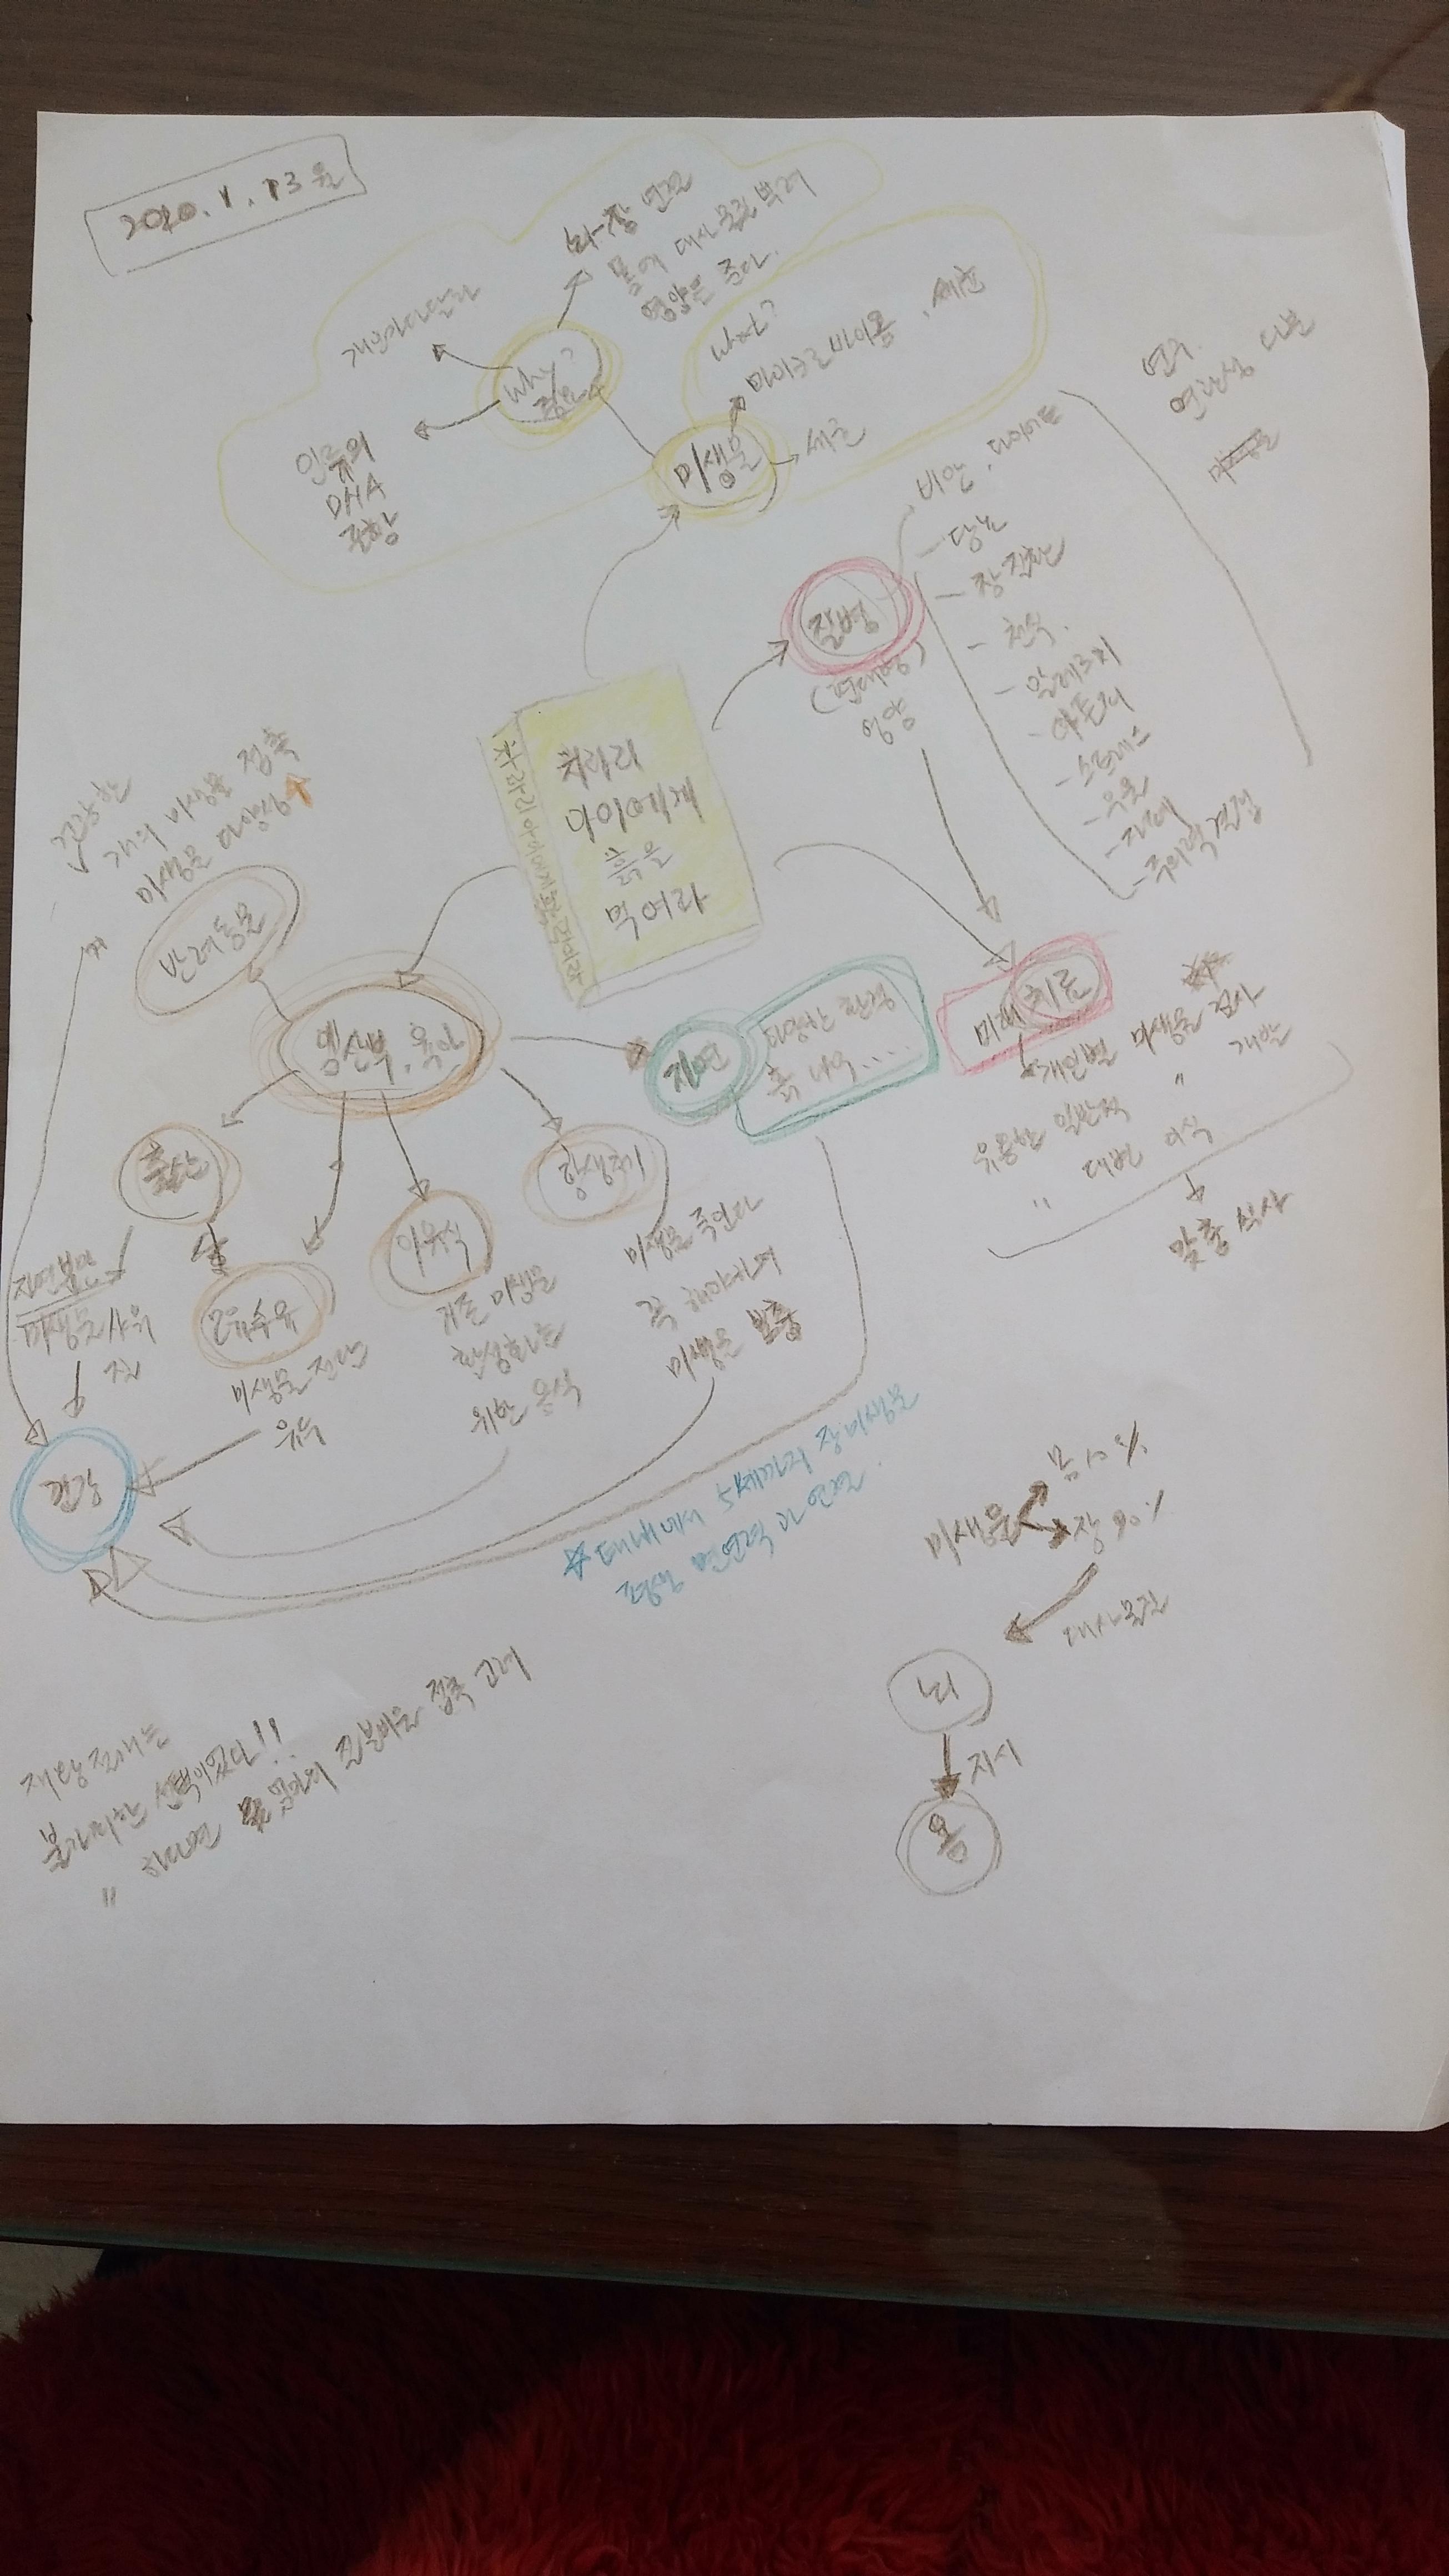 2020. 1. 13 월
뇌-장 연결
몸에 대사물질 뿌려
영향을 준다.
개인마다 달라
why?
중요
인류의
DHA
조상
what?
마이크로바이옴, 세균
미생물
세균
연구.
연관성
질병
(현대병)
영향
비만, 다이어트
- 당뇨
- 장 질환
- 천식.
- 알레르기
- 아토피
- 스트레스
- 우울
- 자폐
- 주의력 결핍
차라리 아이에게 흙을 먹여라
차라리
아이에게
흙을
먹여라
건강한
개의 미생물 접촉
미생물 다양성↑
반려동물
임산부, 육아
자연
다양한 가축
흙 나무.....
미래 치료
개인별 미생물 검사
유용한 일반적 " 개발
" 대변 이식
맞춤 식사
출산
자연분만
미생물 샤워
모유수유
미생물 전달
유두
이유식
기존 미생물
활성화를
위한 음식
항생제
미생물 죽인다
꼭 해야하며
미생물 보충
건강
미생물
몸 10%
장 90%
대사물질
뇌
지시
몸
제왕절개는
불가피한 선택이었다!!
" 하지만 엄마의 질분비물 접촉 고려